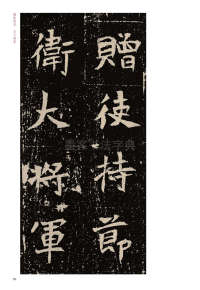 贈使持節
衛大將軍